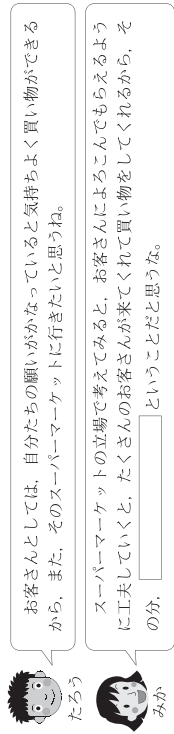 お客さんとしては，自分たちの願いがかなっていると気持ちよく買い物ができる
から，また，そのスーパーマーケットに行きたいと思うね。
たろう
スーパーマーケットの立場で考えてみると，お客さんによろこんでもらえるよう
に工夫していくと，たくさんのお客さんが来てくれて買い物をしてくれるから，そ
の分，　　　　　ということだと思うな。
みか